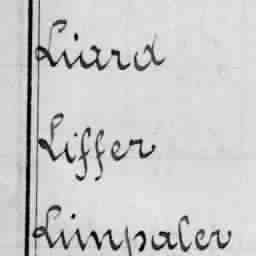 Liard
Liffer
Limpaler